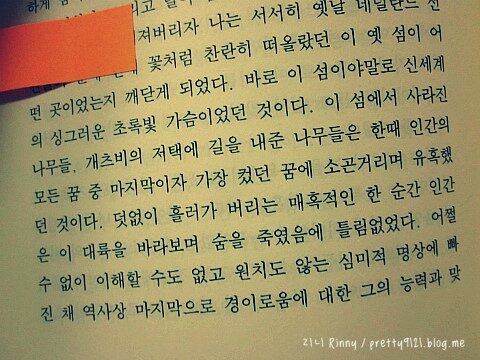 하게
져버리자 나는 서서히 옛날 네덜란드 선
꽃처럼 찬란히 떠올랐던 이 옛 섬이 어
떤 곳이었는지 깨닫게 되었다. 바로 이 섬이야말로 신세계
의 싱그러운 초록빛 가슴이었던 것이다. 이 섬에서 사라진
나무들, 개츠비의 저택에 길을 내준 나무들은 한때 인간의
모든 꿈 중 마지막이자 가장 컸던 꿈에 소곤거리며 유혹했
던 것이다. 덧없이 흘러가 버리는 매혹적인 한 순간 인간
은 이 대륙을 바라보며 숨을 죽였음에 틀림없었다. 어쩔
수 없이 이해할 수도 없고 원치도 않는 심미적 명상에 빠
진 채 역사상 마지막으로 경이로움에 대한 그의 능력과 맞
리니 Rinny / pretty9121.blog.me